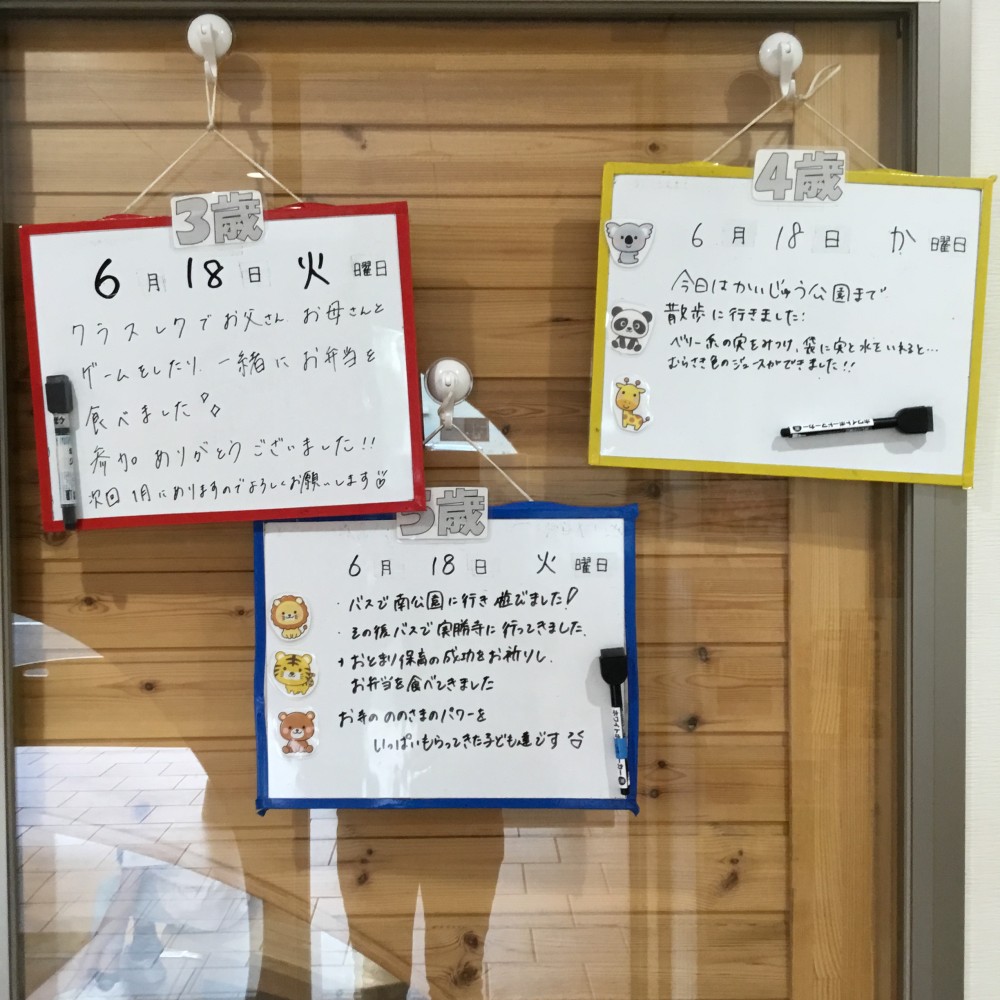 3歳
6月18日 火曜日
クラスレクでお父さん お母さんと
ゲームをしたり、一緒にお弁当を
食べました
参加 ありがとうございました!!
次回 1月にありますのでよろしくお願いします
4歳
6月18日 か曜日
今日はかいじゅう公園まで
散歩に行きました!
ベリー系の実をみつけ、袋に実と水をいれると…
むらさき色のジュースができました!!
ホワイトボードマーカー
5歳
6月18日 火曜日
・バスで南公園に行き 遊びました!
・その後バスで実勝寺に行ってきました。
・おとまり保育の成功をお祈りし、
お弁当を食べてきました
お寺の ののさまのパワーを
いっぱいもらってきた子ども達です